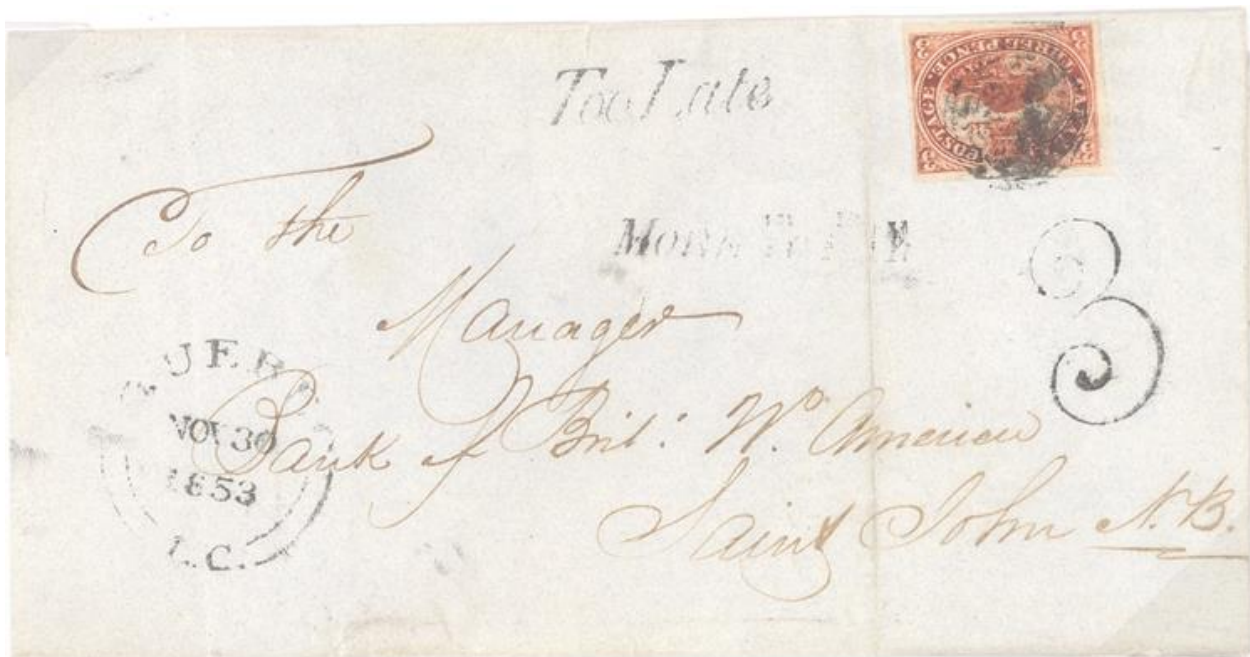 Too Late
CANADA POSTAGE THREE PENCE
3 3 3 3
MORE TO PAY
3
To the
Manager
Bank of Brit: Nº America
Saint John N.B.
QUEBEC
NOV 30
1853
L.C.